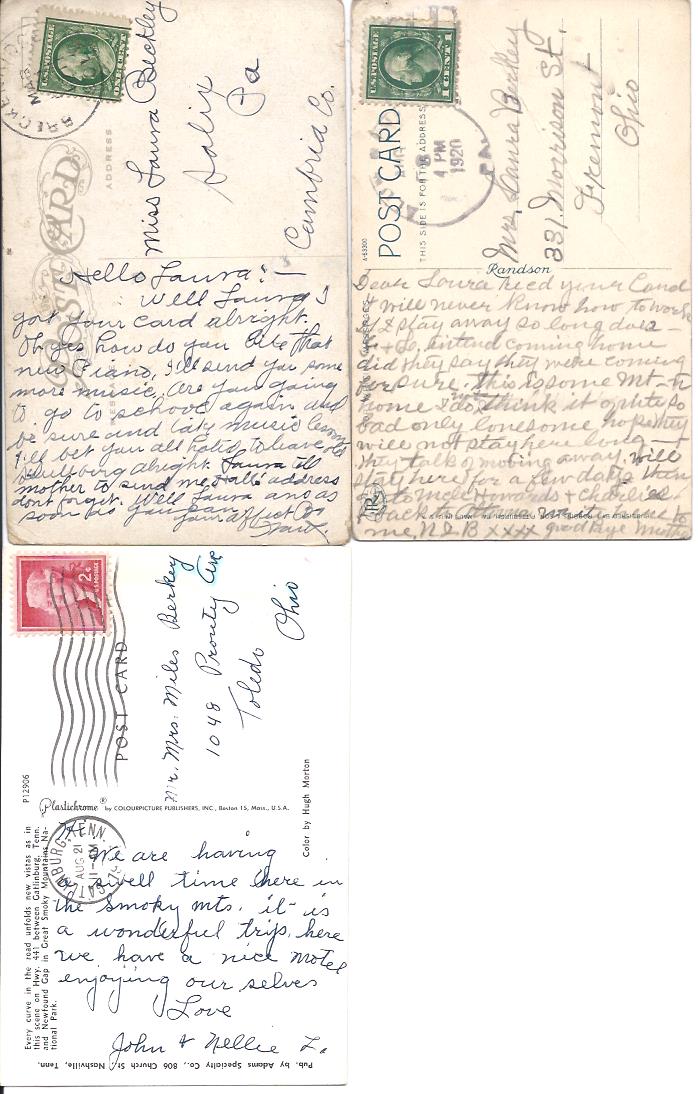 U.S. POSTAGE
ONE CENT
BRECKEN
MAR
POST CARD
ADDRESS
Miss Laura Beckley
Salix
Pa
Cambria Co.
Hello Laura:—
Well Laura I
got your card alright.
Oh yes how do you like that
new Piano, I'll send you some
more music, Are you going
to go to school again, and
be sure and take music lesson
I'll bet you all hated to leave old
alright. Laura tell
mother to send me address
dont forget. Well Laura ans as
soon as you can
your affect
U.S. POSTAGE
1 CENT 1
4 PM
1920
PA
POST CARD
THIS SIDE IS FOR THE ADDRESS
A-63300
Mrs. Laura Berkey
331, Morrison St.
Fremont
Ohio
Randson
Dear Laura recd your Card
& will never know how to work
if I stay away so long does
& Jo, intend coming home
did they say they were coming
for sure. this is some Mt-n
home I do, think it quite so
bad only lonesome hope they
will not stay here long
they talk of moving away. will
stay here for a few days then
to Uncle Howards & Charlies
back to write to
me, N B xxxx goodbye Mother
2¢
U.S. POSTAGE
POST CARD
Mr. Mrs. Miles Berkey
1048 Prouty Ave
Toledo
Ohio
P12906
Plastichrome® by COLOURPICTURE PUBLISHERS, INC., Boston 15, Mass., U.S.A.
Color by Hugh Morton
GATLINBURG, TENN.
AUG 21
Every curve in the road unfolds new vistas as in
this scene on Hwy. 441 between Gatlinburg, Tenn.
and Newfound Gap in Great Smoky Mountains Na-
tional Park.
Hi.
We are having
a swell time here in
the Smoky mts. it is
a wonderful trip. here
we have a nice motel
enjoying our selves
Love
John & Nellie L.
Pub. by Adams Specialty Co., 806 Church St., Nashville, Tenn.